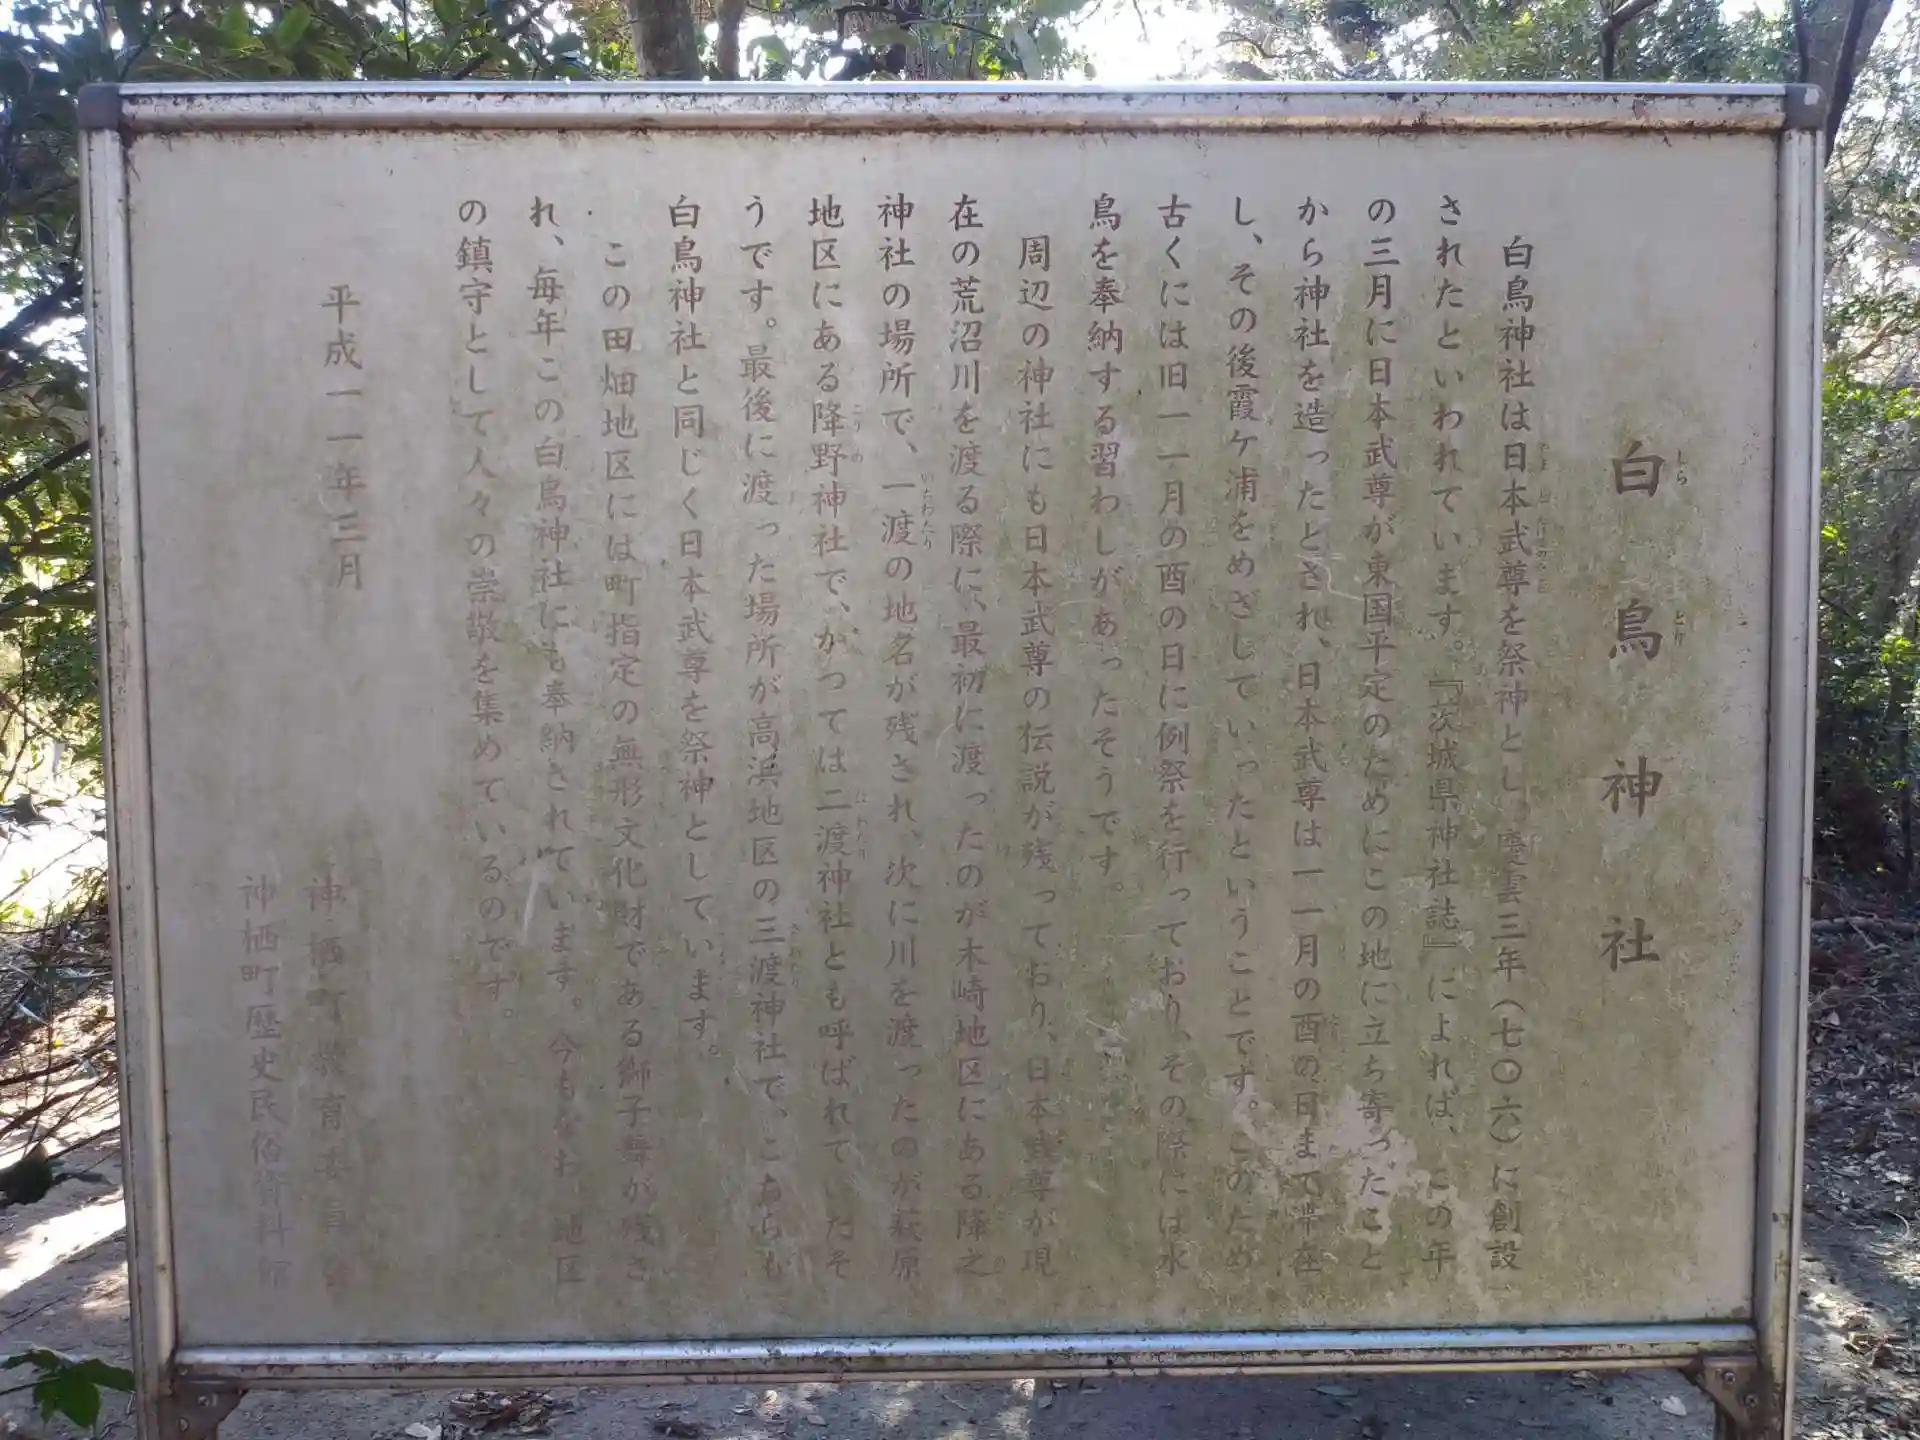 白鳥神社
白鳥神社は日本武尊を祭神とし、慶雲三年(七〇六)に創設
されたといわれています。『茨城県神社誌』によれば、この年
の三月に日本武尊が東国平定のためにこの地に立ち寄ったこと
から神社を造ったとされ、日本武尊は一一月の酉の日まで滞在
し、その後霞ケ浦をめざしていったということです。このため
古くには旧一一月の酉の日に例祭を行っており、その際には水
鳥を奉納する習わしがあったそうです。
周辺の神社にも日本武尊の伝説が残っており、日本武尊が現
在の荒沼川を渡る際に、最初に渡ったのが木崎地区にある降之
神社の場所で、一渡の地名が残され、次に川を渡ったのが萩原
地区にある降野神社で、かつては二渡神社とも呼ばれていたそ
うです。最後に渡った場所が高浜地区の三渡神社で、こちらも
白鳥神社と同じく日本武尊を祭神としています。
この田畑地区には町指定の無形文化財である獅子舞が残さ
れ、毎年この白鳥神社にも奉納されています。今もなお、地区
の鎮守として人々の崇敬を集めているのです。
平成一一年三月
神栖町教育委員会
神栖町歴史民俗資料館